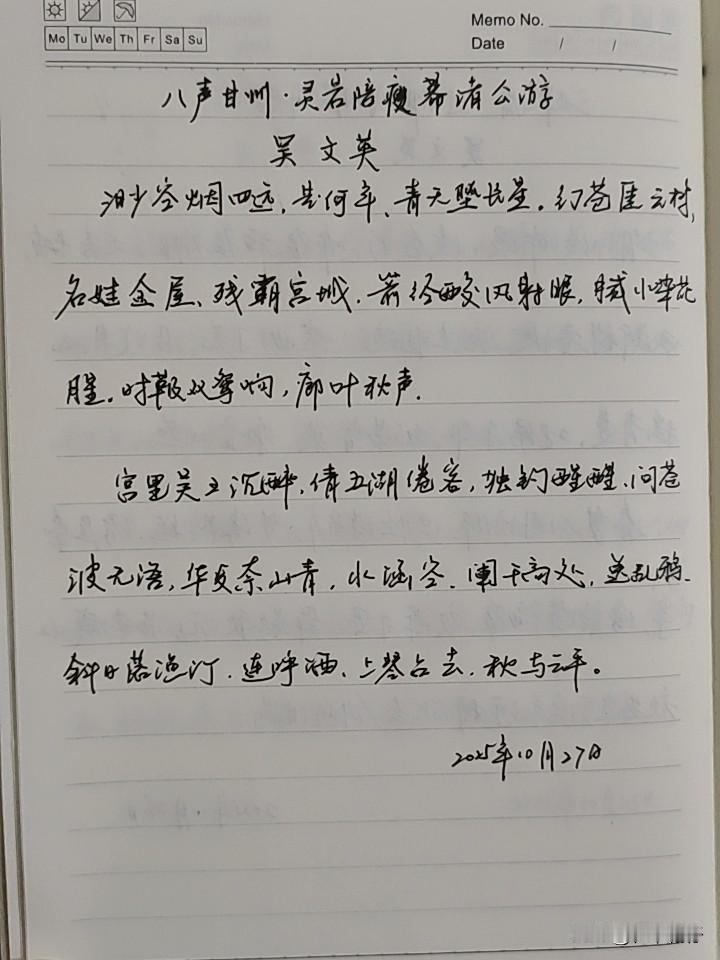 Mo Tu We Th Fr Sa Su
Memo No.
Date / /
八声甘州·灵岩陪瘦幕渚公游
吴文英
渺空烟四远,是何年、青天坠长星.幻苍崖云树,
名娃金屋、残霸宫城.箭径酸风射眼,腻水染花
腥.时靸双鸳响,廊叶秋声.
宫里吴王沉醉,倩五湖倦客,独钓醒醒.问苍
波无语,华发奈山青,水涵空.阑干高处,送乱鸦.
斜日落渔汀.连呼酒、上琴台去,秋与云平。
2025年10月27日